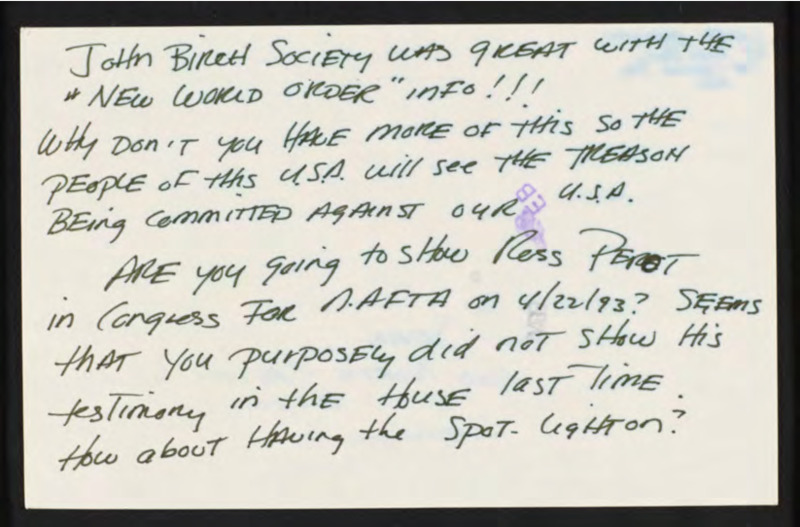 John Birch Society was great with the
"New World Order" info!!!
Why don't you have more of this so the
people of this U.S.A. will see the treason
being committed against our U.S.A.
Are you going to show Ross Perot
in Congress for N.AFTA on 4/22/93? Seems
that you purposely did not show his
testimony in the House last time.
How about having the Spot-light on?